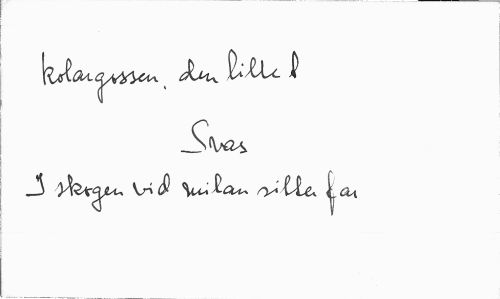 kolargossen, den lille
Svas
I skogen vid milan sitter far